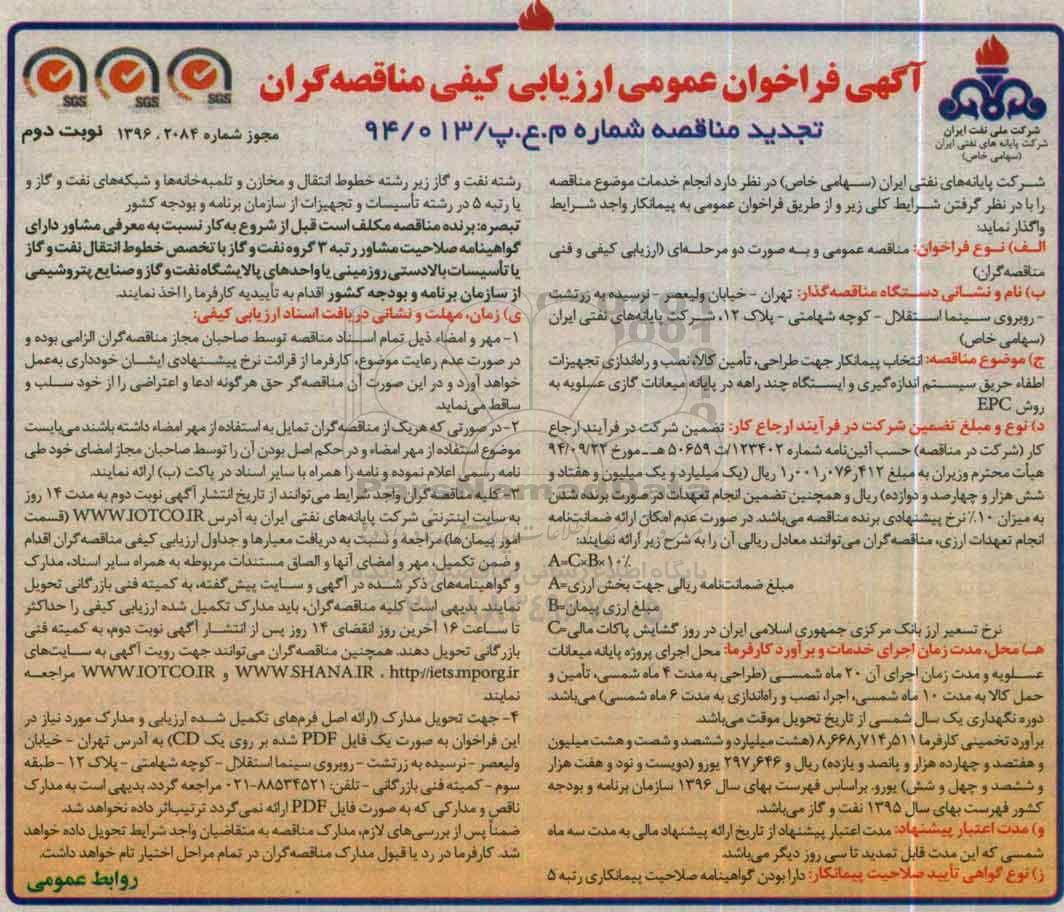 آگهی فراخوان عمومی ارزیابی کیفی مناقصه‌گران
تجدید مناقصه شماره م.ع.پ/۹۴/۰۱۳
مجوز شماره ۲۰۸۴ . ۱۳۹۶ نوبت دوم
SGS
SGS
SGS
شرکت ملی نفت ایران
شرکت پایانه های نفتی ایران
(سهامی خاص)
شرکت پایانه‌های نفتی ایران (سهامی خاص) در نظر دارد انجام خدمات موضوع مناقصه
را با در نظر گرفتن شرایط کلی زیر و از طریق فراخوان عمومی به پیمانکار واجد شرایط
واگذار نماید:
الف) نوع فراخوان: مناقصه عمومی و به صورت دو مرحله‌ای (ارزیابی کیفی و فنی
مناقصه‌گران)
ب) نام و نشانی دستگاه مناقصه‌گذار: تهران - خیابان ولیعصر - نرسیده به زرتشت
- روبروی سینما استقلال - کوچه شهامتی - پلاک ۱۲، شرکت پایانه‌های نفتی ایران
(سهامی خاص)
ج) موضوع مناقصه: انتخاب پیمانکار جهت طراحی، تأمین کالا، نصب و راه‌اندازی تجهیزات
اطفاء حریق سیستم اندازه‌گیری و ایستگاه چند راهه در پایانه میعانات گازی عسلویه به
روش EPC
د) نوع و مبلغ تضمین شرکت در فرآیند ارجاع کار: تضمین شرکت در فرآیند ارجاع
کار (شرکت در مناقصه) حسب آئین‌نامه شماره ۱۲۳۴۰۲/ت ۵۰۶۵۹ هـ مورخ ۹۴/۰۹/۲۲
هیأت محترم وزیران به مبلغ ۱٫۰۰۱٫۰۷۶٫۴۱۲ ریال (یک میلیارد و یک میلیون و هفتاد و
شش هزار و چهارصد و دوازده) ریال و همچنین تضمین انجام تعهدات در صورت برنده شدن
به میزان ۱۰٪ نرخ پیشنهادی برنده مناقصه می‌باشد. در صورت عدم امکان ارائه ضمانتنامه
انجام تعهدات ارزی، مناقصه‌گران می‌توانند معادل ریالی آن را به شرح زیر ارائه نمایند:
A=C×B×۱۰٪
مبلغ ضمانت‌نامه ریالی جهت بخش ارزی=A
مبلغ ارزی پیمان=B
نرخ تسعیر ارز بانک مرکزی جمهوری اسلامی ایران در روز گشایش پاکات مالی=C
هـ) محل، مدت زمان اجرای خدمات و برآورد کارفرما: محل اجرای پروژه پایانه میعانات
عسلویه و مدت زمان اجرای آن ۲۰ ماه شمسی (طراحی به مدت ۴ ماه شمسی، تأمین و
حمل کالا به مدت ۱۰ ماه شمسی، اجرا، نصب و راه‌اندازی به مدت ۶ ماه شمسی) می‌باشد.
دوره نگهداری یک سال شمسی از تاریخ تحویل موقت می‌باشد.
برآورد تخمینی کارفرما ۸٫۶۶۸٫۷۱۴٫۵۱۱ (هشت میلیارد و ششصد و شصت و هشت میلیون
و هفتصد و چهارده هزار و پانصد و یازده) ریال و ۲۹۷٫۶۴۶ یورو (دویست و نود و هفت هزار
و ششصد و چهل و شش) یورو. براساس فهرست بهای سال ۱۳۹۶ سازمان برنامه و بودجه
کشور فهرست بهای سال ۱۳۹۵ نفت و گاز می‌باشد.
و) مدت اعتبار پیشنهاد: مدت اعتبار پیشنهاد از تاریخ ارائه پیشنهاد مالی به مدت سه ماه
شمسی که این مدت قابل تمدید تا سی روز دیگر می‌باشد.
ز) نوع گواهی تأیید صلاحیت پیمانکار: دارا بودن گواهینامه صلاحیت پیمانکاری رتبه ۵
رشته نفت و گاز زیر رشته خطوط انتقال و مخازن و تلمبه‌خانه‌ها و شبکه‌های نفت و گاز و
یا رتبه ۵ در رشته تأسیسات و تجهیزات از سازمان برنامه و بودجه کشور
تبصره: برنده مناقصه مکلف است قبل از شروع به کار نسبت به معرفی مشاور دارای
گواهینامه صلاحیت مشاور رتبه ۳ گروه نفت و گاز با تخصص خطوط انتقال نفت و گاز
یا تأسیسات بالادستی روزمینی یا واحدهای پالایشگاه نفت و گاز و صنایع پتروشیمی
از سازمان برنامه و بودجه کشور اقدام به تأییدیه کارفرما را اخذ نمایند.
ی) زمان، مهلت و نشانی دریافت اسناد ارزیابی کیفی:
۱- مهر و امضاء ذیل تمام اسناد مناقصه توسط صاحبان مجاز مناقصه‌گران الزامی بوده و
در صورت عدم رعایت موضوع، کارفرما از قرائت نرخ پیشنهادی ایشان خودداری به‌عمل
خواهد آورد و در این صورت آن مناقصه‌گر حق هرگونه ادعا و اعتراضی را از خود سلب و
ساقط می‌نماید.
۲- در صورتی که هریک از مناقصه‌گران تمایل به استفاده از مهر امضاء داشته باشند می‌بایست
موضوع استفاده از مهر امضاء و در حکم اصل بودن آن را توسط صاحبان مجاز امضای خود طی
نامه رسمی اعلام نموده و نامه را همراه با سایر اسناد در پاکت (ب) ارائه نمایند.
۳- کلیه مناقصه‌گران واجد شرایط می‌توانند از تاریخ انتشار آگهی نوبت دوم به مدت ۱۴ روز
به سایت اینترنتی شرکت پایانه‌های نفتی ایران به آدرس WWW.IOTCO.IR (قسمت
امور پیمان‌ها) مراجعه و نسبت به دریافت معیارها و جداول ارزیابی کیفی مناقصه‌گران اقدام
و ضمن تکمیل، مهر و امضای آنها و الصاق مستندات مربوطه به همراه سایر اسناد، مدارک
و گواهینامه‌های ذکر شده در آگهی و سایت پیش‌گفته، به کمیته فنی بازرگانی تحویل
نمایند. بدیهی است کلیه مناقصه‌گران، باید مدارک تکمیل شده ارزیابی کیفی را حداکثر
تا ساعت ۱۶ آخرین روز انقضای ۱۴ روز پس از انتشار آگهی نوبت دوم، به کمیته فنی
بازرگانی تحویل دهند. همچنین مناقصه‌گران می‌توانند جهت رویت آگهی به سایت‌های
http://iets.mporg.ir ، WWW.SHANA.IR و WWW.IOTCO.IR مراجعه
نمایند
۴- جهت تحویل مدارک (ارائه اصل فرم‌های تکمیل شده ارزیابی و مدارک مورد نیاز در
این فراخوان به صورت یک فایل PDF شده بر روی یک CD) به آدرس تهران - خیابان
ولیعصر - نرسیده به زرتشت - روبروی سینما استقلال - کوچه شهامتی - پلاک ۱۲ - طبقه
سوم - کمیته فنی بازرگانی - تلفن: ۸۸۵۳۴۵۲۱-۰۲۱ مراجعه گردد. بدیهی است به مدارک
ناقص و مدارکی که به صورت فایل PDF ارائه نمی‌گردد ترتیب‌اثر داده نخواهد شد.
ضمناً پس از بررسی‌های لازم، مدارک مناقصه به متقاضیان واجد شرایط تحویل داده خواهد
شد. کارفرما در رد یا قبول مدارک مناقصه‌گران در تمام مراحل اختیار تام خواهد داشت.
روابط عمومی